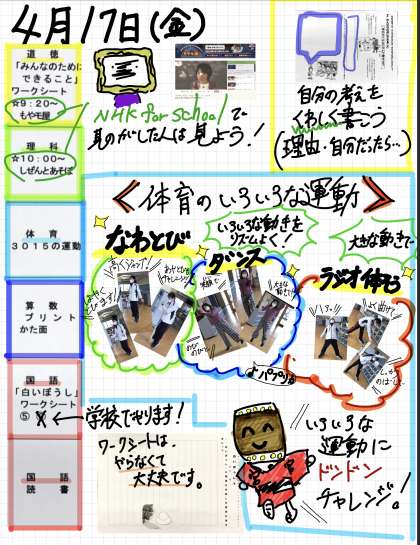 4月17日(金)
道徳
「みんなのために
できること」
ワークシート
☆9:20～
もやモ屋
理科
☆10:00～
しぜんとあそぼ
体育
3015の運動
算数
プリント
かた面
国語
「白いぼうし」
ワークシート
⑤
国語
読書
NHK for Schoolで
見のがした人は見よう!
自分の考えを
くわしく書こう
(理由・自分だったら…)
《体育のいろいろな運動》
いろいろな動きを
リズムよく!
大きな動きで
なわとび
ダンス
ラジオ体そう
よく曲げて
♪パプリカ
学校でやります!
ワークシートは、
やらなくて
大丈夫です。
いろいろな
運動に
ドンドン
チャレンジ。!